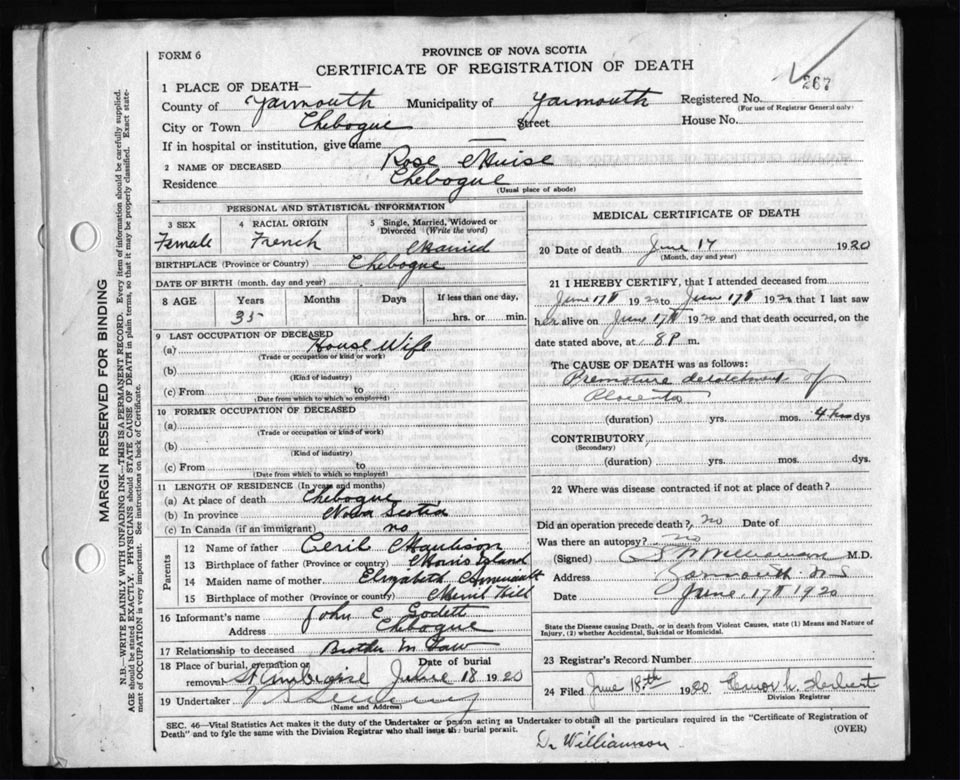 FORM 6
PROVINCE OF NOVA SCOTIA
CERTIFICATE OF REGISTRATION OF DEATH
267
1 PLACE OF DEATH—
County of Yarmouth Municipality of Yarmouth Registered No.
(For use of Registrar General only)
City or Town Chebogue Street House No.
If in hospital or institution, give name —
2 NAME OF DECEASED Rose Muise
Residence Chebogue
(Usual place of abode)
PERSONAL AND STATISTICAL INFORMATION
3 SEX 4 RACIAL ORIGIN 5 Single, Married, Widowed or Divorced (Write the word)
Female French Married
BIRTHPLACE (Province or Country) Chebogue
DATE OF BIRTH (month, day and year)
8 AGE Years Months Days If less than one day,
35 hrs. or min.
9 LAST OCCUPATION OF DECEASED
(a) House Wife
(Trade or occupation or kind or work)
(b)
(Kind of industry)
(c) From to
(Date from which to which so employed)
10 FORMER OCCUPATION OF DECEASED
(a)
(Trade or occupation or kind of work)
(b)
(Kind of industry)
(c) From to
(Date from which to which so employed)
11 LENGTH OF RESIDENCE (In years and months)
(a) At place of death Chebogue
(b) In province Nova Scotia
(c) In Canada (if an immigrant) no
Parents
12 Name of father Ceril
13 Birthplace of father (Province or country) Morris Island
14 Maiden name of mother Elizabeth
15 Birthplace of mother (Province or country) Hill
16 Informant's name John C Godett
Address Chebogue
17 Relationship to deceased Brother in Law
18 Place of burial, cremation or removal St Ambroise Date of burial June 18 1920
19 Undertaker
(Name and Address)
MEDICAL CERTIFICATE OF DEATH
20 Date of death June 17 1920
(Month, day and year)
21 I HEREBY CERTIFY, that I attended deceased from
June 17th 1920 to June 17th 1920 that I last saw
her alive on June 17th 1920 and that death occurred, on
the date stated above, at 8 P m.
The CAUSE OF DEATH was as follows:
Premature detachment of
Placenta
(duration) yrs. mos. 4 hrs dys
CONTRIBUTORY
(Secondary)
(duration) yrs. mos. dys.
22 Where was disease contracted if not at place of death?
Did an operation precede death? no Date of
Was there an autopsy? no
(Signed) Williamson M.D.
Address Yarmouth. N S
Date June, 17th 1920
State the Disease causing Death, or in death from Violent Causes, state (1) Means and Nature of
Injury, (2) whether Accidental, Suicidal or Homicidal.
23 Registrar's Record Number
24 Filed June 18th 1920 Herbert
Division Registrar
SEC. 46—Vital Statistics Act makes it the duty of the Undertaker or person acting as Undertaker to obtain all the particulars required in the "Certificate of Registration of
Death" and to fyle the same with the Division Registrar who shall issue the burial permit.
(OVER)
Dr Williamson
MARGIN RESERVED FOR BINDING
N.B.—WRITE PLAINLY WITH UNFADING INK—THIS IS A PERMANENT RECORD. Every item of information should be carefully supplied.
AGE should be stated EXACTLY. PHYSICIANS should STATE CAUSE OF DEATH in plain terms, so that it may be properly classified. Exact state-
ment of OCCUPATION is very important. See instructions on back of Certificate.